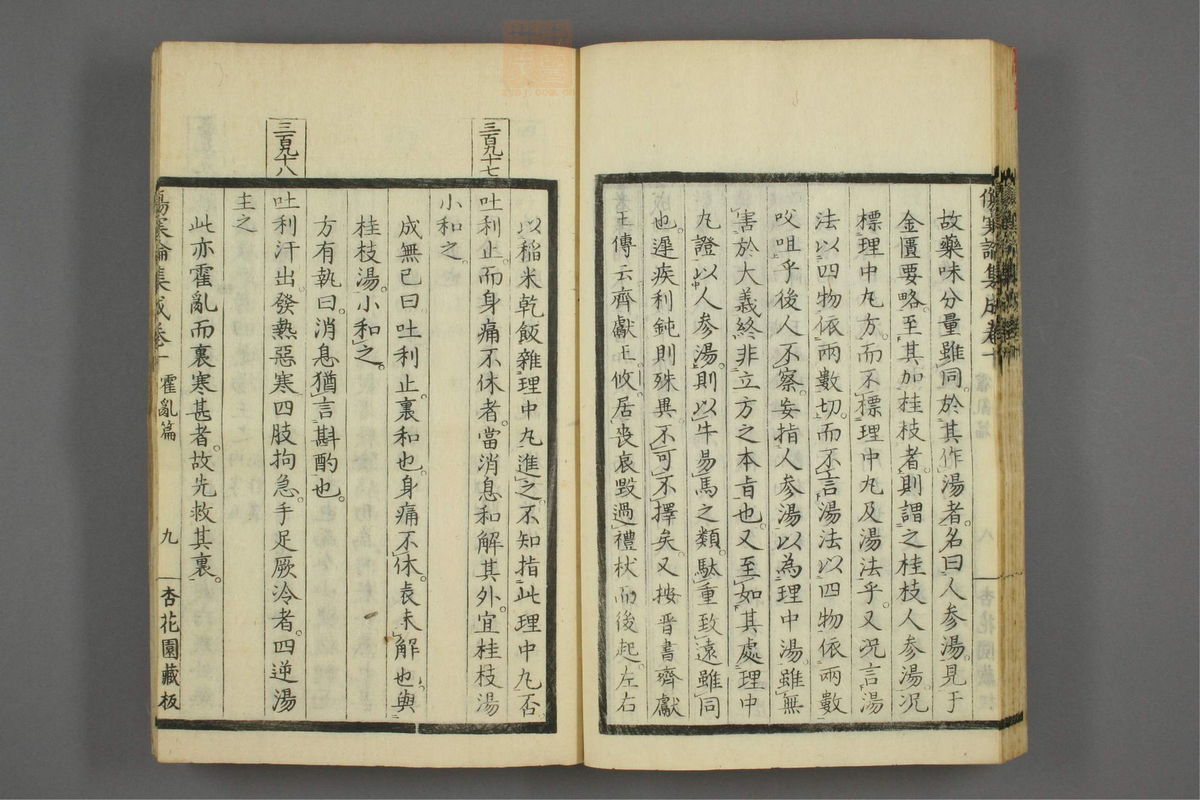 傷寒論集成卷十
故藥味分量雖同。於其作湯者。名曰人參湯。見于
金匱要略。至其加桂枝者。則謂之桂枝人參湯。況
標理中丸方。而不標理中丸及湯法乎。又況言湯
法以四物依兩數切。而不言湯法以四物依兩數
㕮咀乎。後人不察。妄指人參湯以為理中湯。雖無
害於大義。終非立方之本旨也。又至如其處理中
丸證以人參湯。則以牛易馬之類。駄重致遠雖同
也。遲疾利鈍則殊異。不可不擇矣。又按晋書齊獻
王傳云。齊獻王攸。居喪哀毀過禮。杖而後起。左右
以稻米乾飯雜理中丸進之。不知指此理中丸否。
三百九十七
吐利止。而身痛不休者。當消息和解其外。宜桂枝湯
小和之。
成無已曰。吐利止。裏和也。身痛不休。表未解也。與
桂枝湯。小和之。
方有執曰。消息。猶言斟酌也。
三百九十八
吐利汗出。發熱惡寒。四肢拘急。手足厥冷者。四逆湯
主之。
此亦霍亂而裏寒甚者。故先救其裏。
傷寒論集成卷十 霍亂篇 九 杏花園藏板